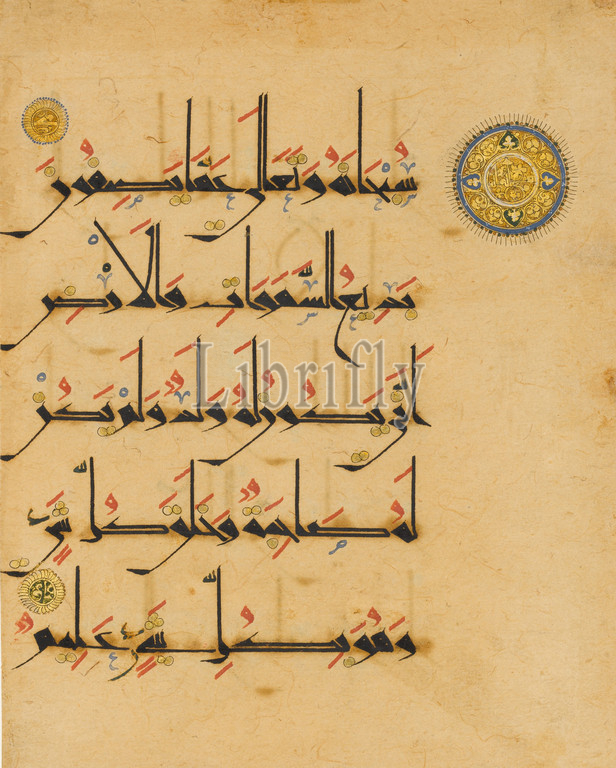 سُبْحَانَهُ وَتَعَالَى عَمَّا يَصِفُونَ
بَدِيعُ السَّمَوَاتِ وَالْأَرْضِ
أَنَّى يَكُونُ لَهُ وَلَدٌ وَلَمْ يَكُنْ
لَهُ صَاحِبَةٌ وَخَلَقَ كُلَّ شَيْءٍ
وَهُوَ بِكُلِّ شَيْءٍ عَلِيمٌ
Librifly